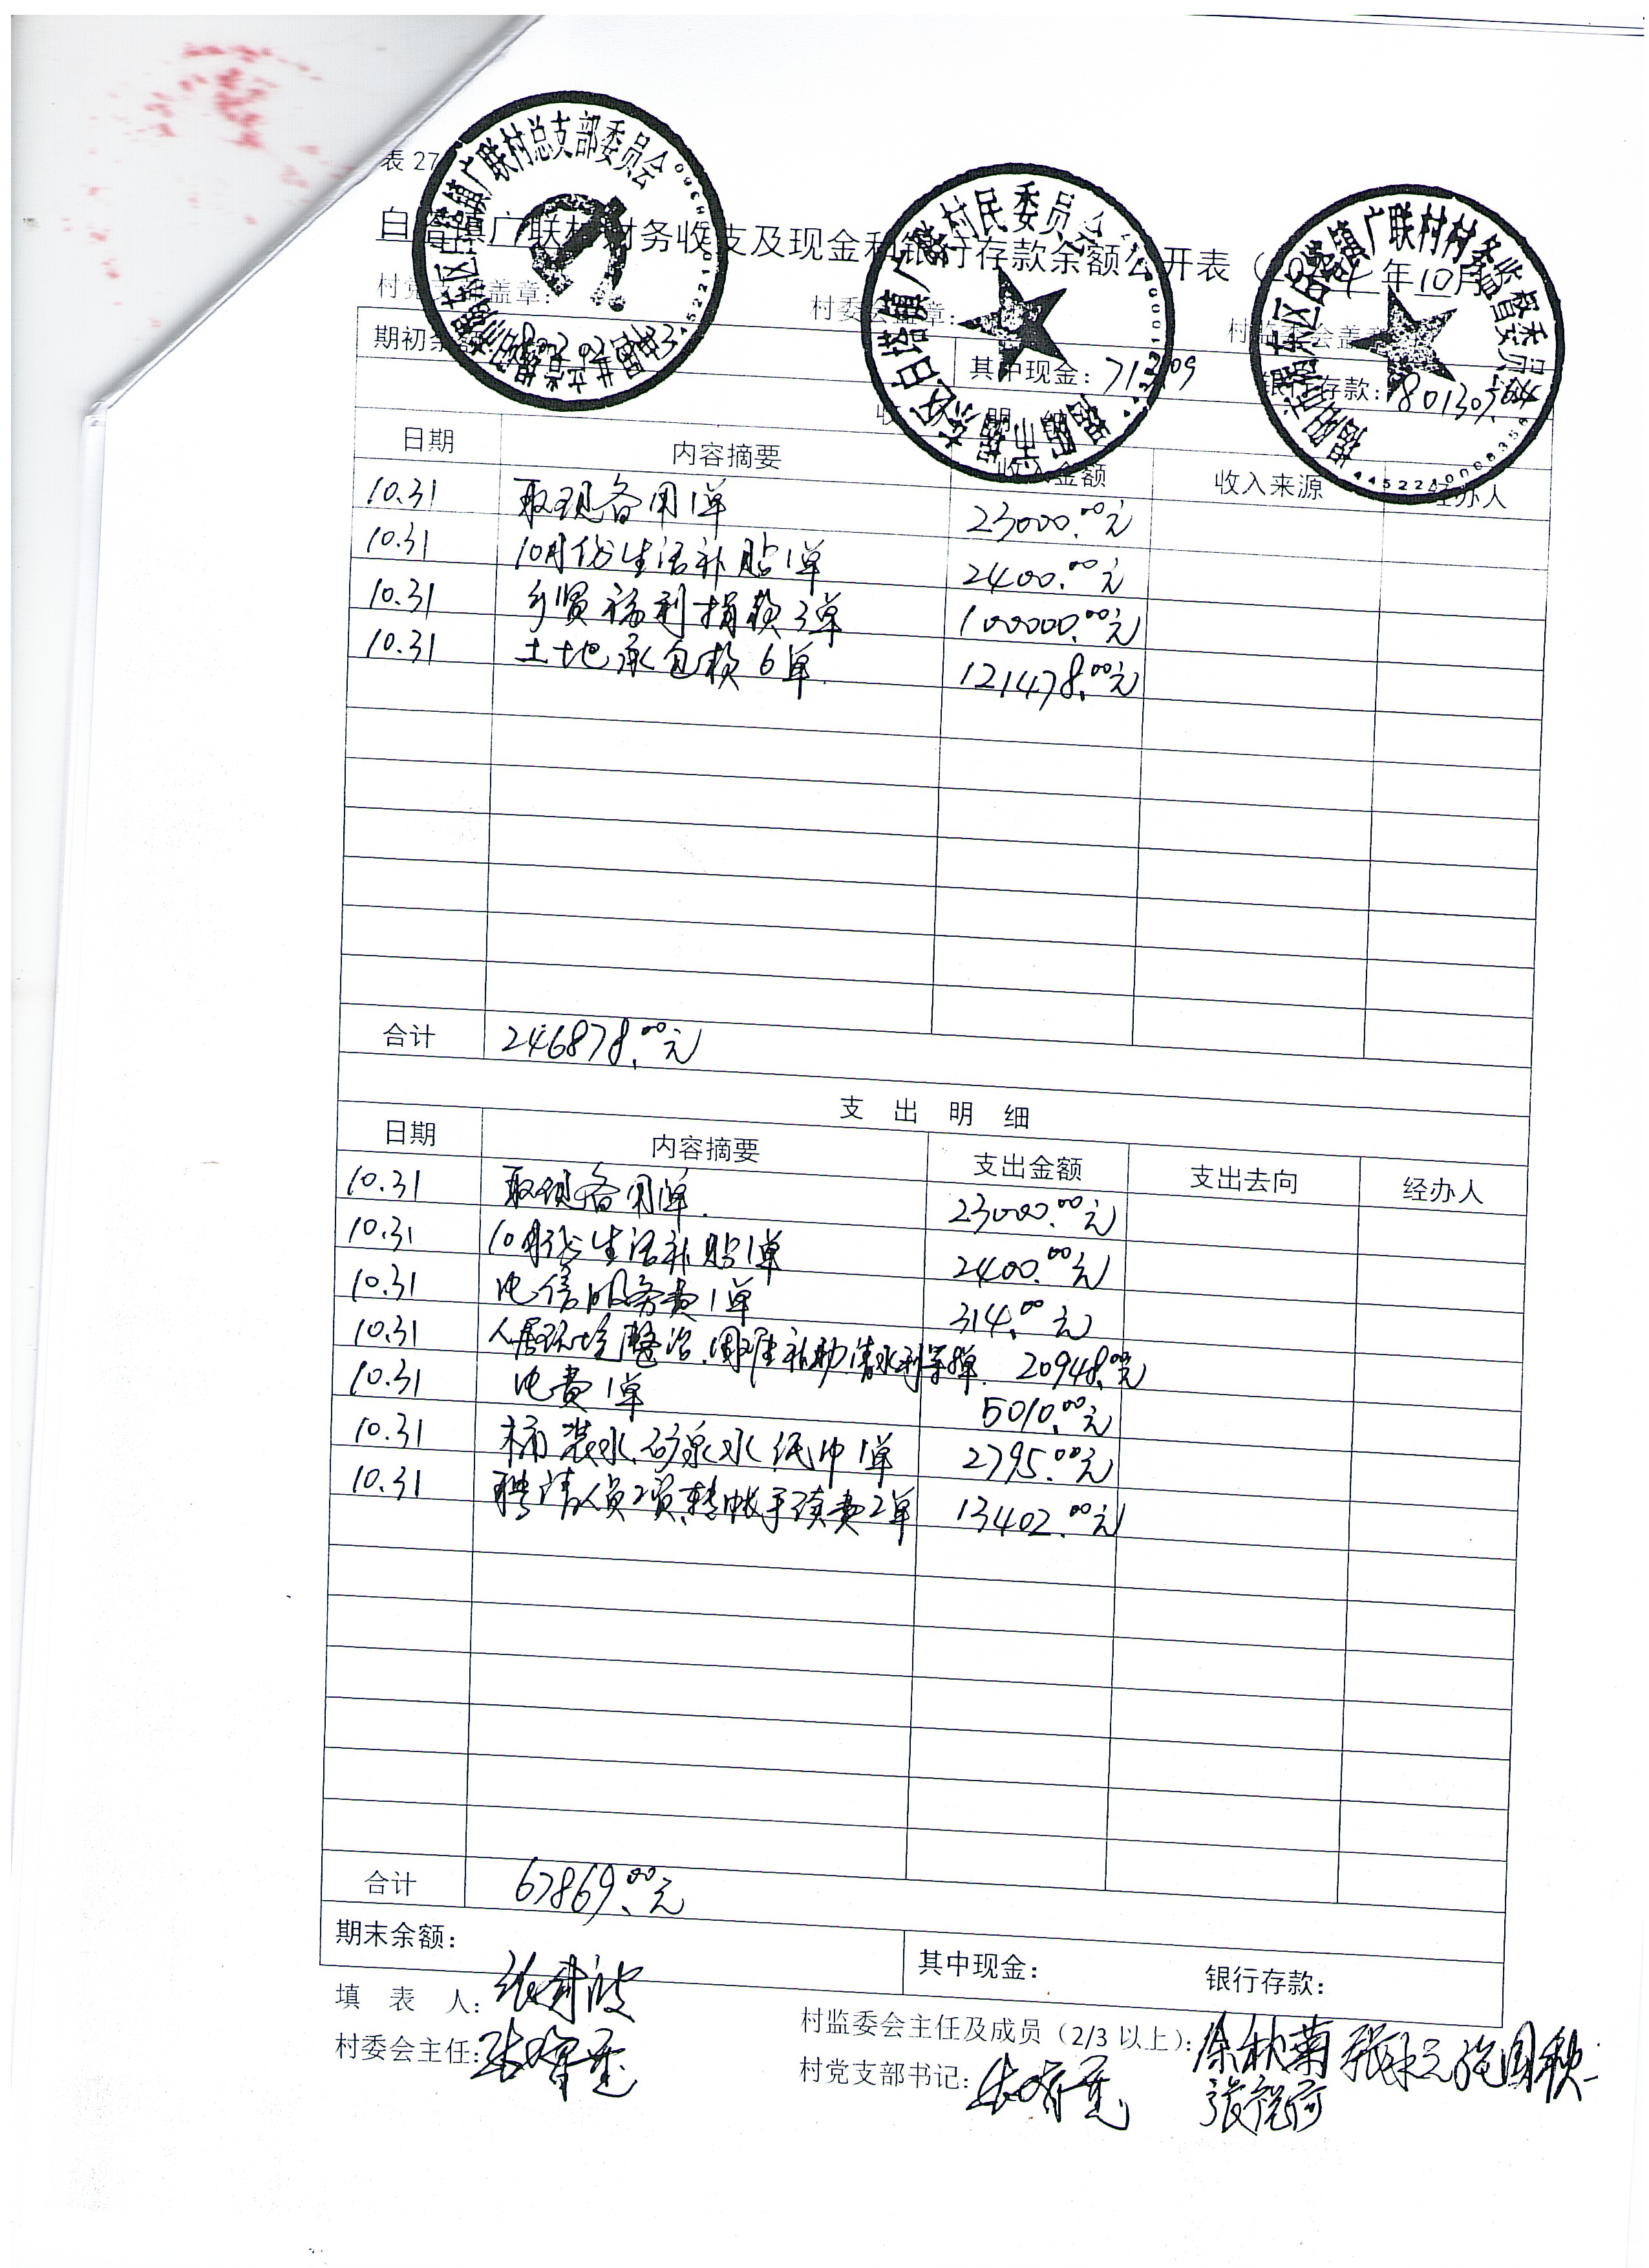 表 27
白塔镇广联村财务收支及现金和银行存款余额公开表（ 年10月
村党 盖章： 村委会盖章： 村监委会盖章
期初余额 其中现金： 银行存款：
收 入 明 细
日期 内容摘要 收入金额 收入来源 经办人
10.31 取现备用1单 23000.00元
10.31 10月份生活补贴1单 2400.00元
10.31 乡贤福利捐款3单 100000.00元
10.31 土地承包款6单 121478.00元
合计 246878.00元
支 出 明 细
日期 内容摘要 支出金额 支出去向 经办人
10.31 取现备用1单 23000.00元
10.31 10月份生活补贴1单 2400.00元
10.31 电信服务费1单 314.00元
10.31 人居环境整治、困难补助、清水利等 单 20948.00元
10.31 电费1单 5010.00元
10.31 桶装水、矿泉水、纸巾1单 2795.00元
10.31 聘请人员工资、转帐手续费2单 13402.00元
合计 67869.00元
期末余额： 其中现金： 银行存款：
填 表 人：
村监委会主任及成员（2/3 以上）：徐秋菊
村委会主任： 村党支部书记：
广联村总支部委员会
白塔镇广联村村民委员会
白塔镇广联村村务监督委员会